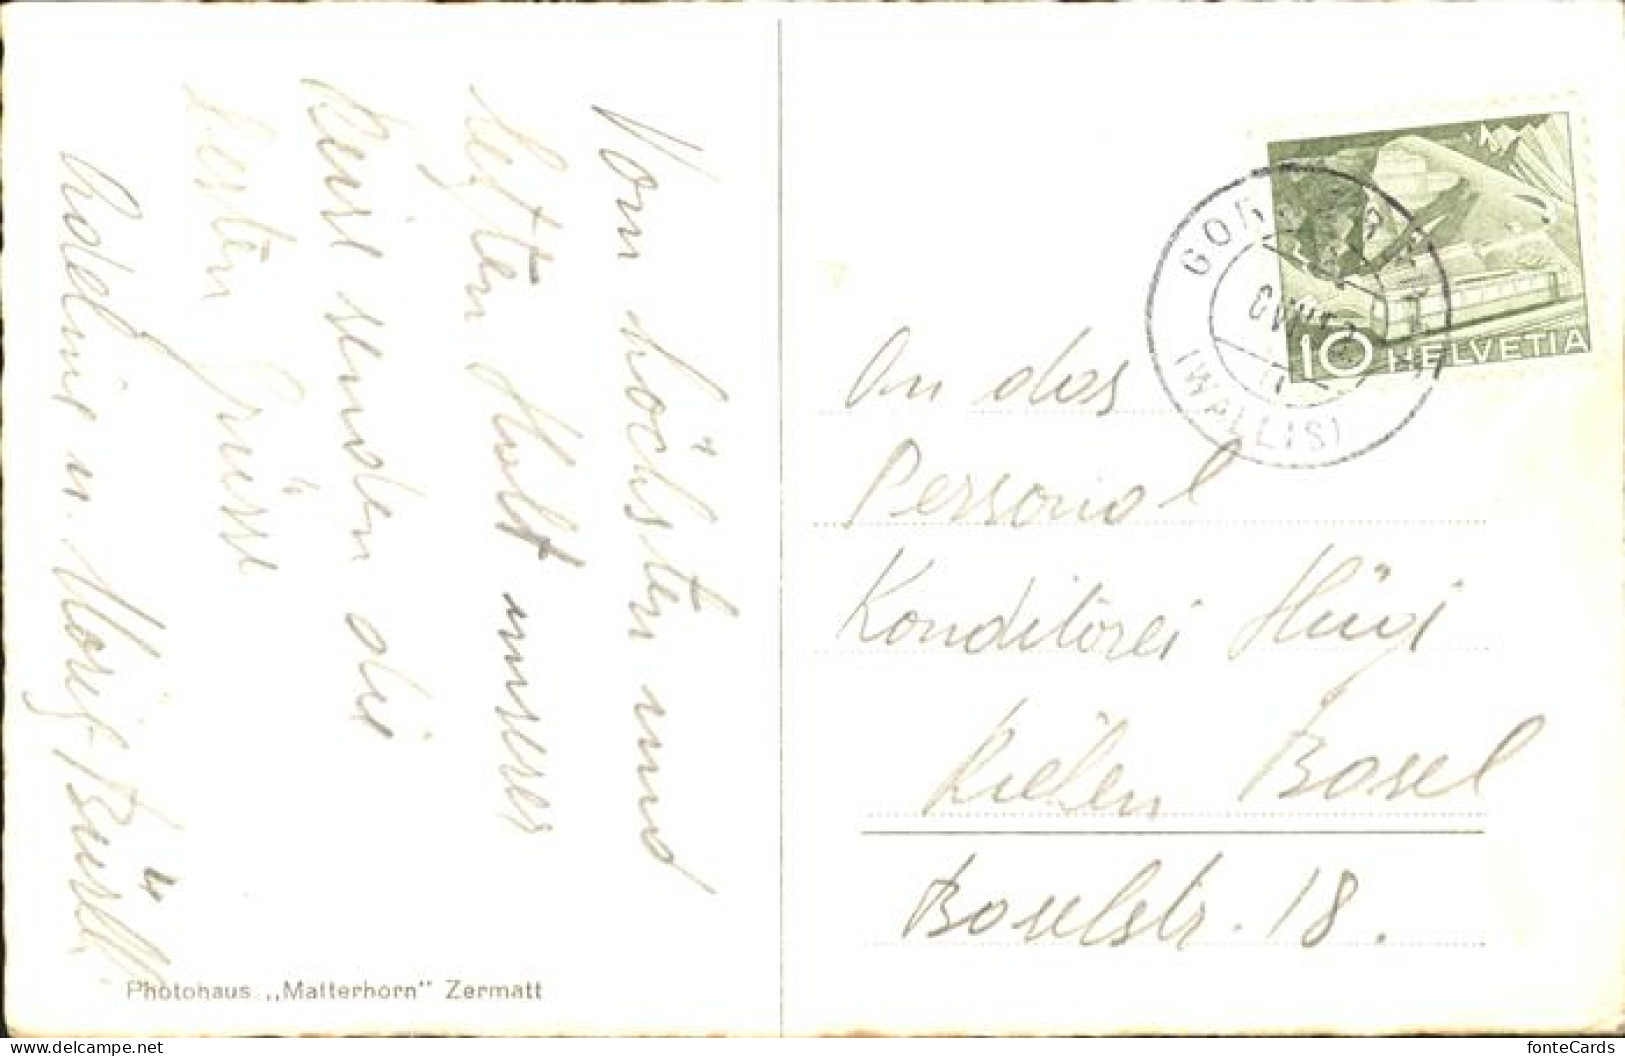 Vom höchsten und
letzten Halt unserer
Reise senden die
besten Grüsse
u.
Photohaus „Matterhorn" Zermatt
GOR
(WALLIS)
10 HELVETIA
An das
Personal
Konditorei Hügi
Riehen Basel
Baselstr. 18.
www.delcampe.net
fonteCards